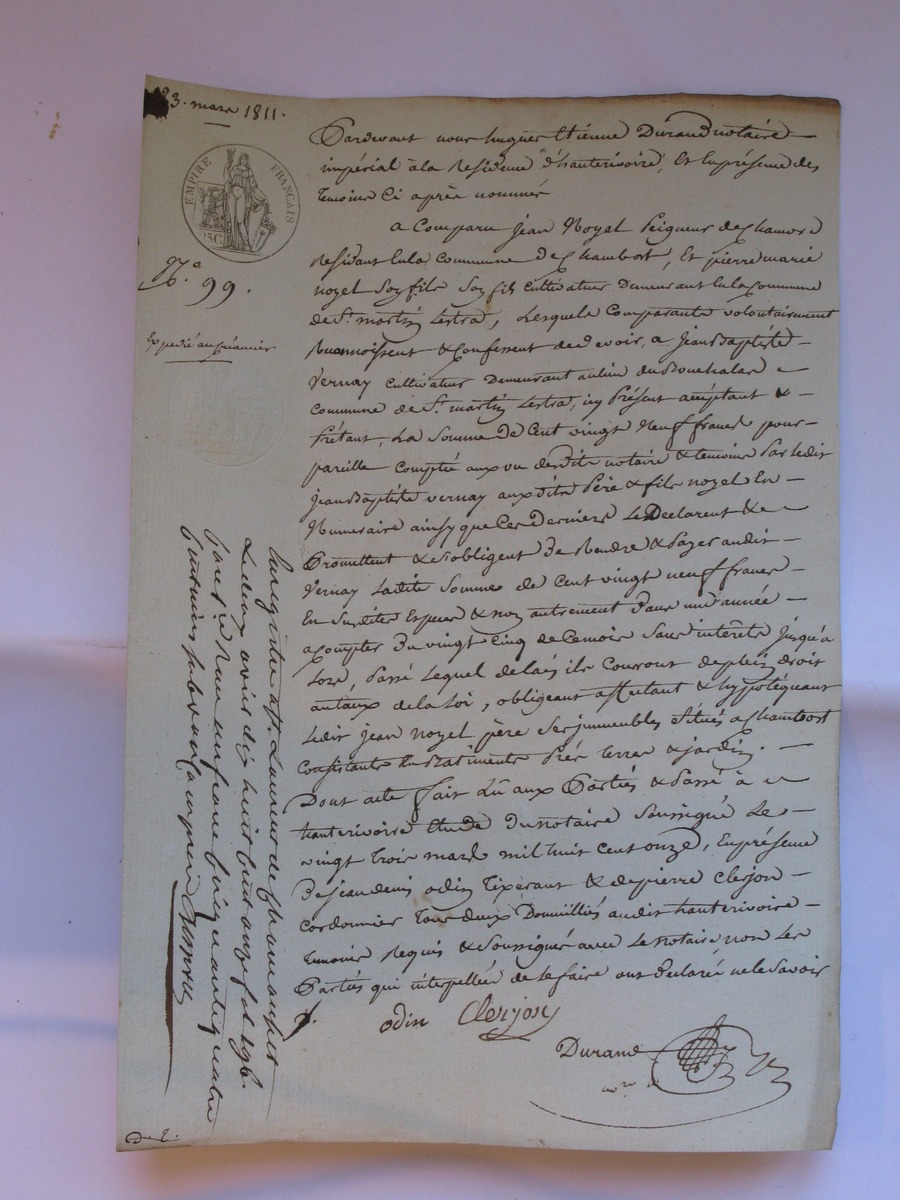 23. mars 1811.
EMPIRE FRANÇAIS
25C
N.º 99.
Expedié au Créancier
Pardevant nous hugues Etienne Durand notaire
impérial à la Residence d'hauterivoire, Et En présence des
temoins Ci après nommés
a Comparu Jean Noyel Peigneur de Chanvre
Residant En la Commune de Chambost, Et pierre marie
noyel Son fils Son fils Cultivateur Demeurant En la Commune
de St. martin Lestra, Lesquels Comparants volontairement
Reconnoissent & Confessent de devoir, a Jean Baptiste
Vernay Cultivateur Demeurant au lieu du
commune de St. martin Lestra, icy Présent acceptant &
Prétant, La Somme de Cent vingt Neuf francs pour
pareille Comptée aux vu desdits notaire & temoins Par ledit
Jean Baptiste vernay auxdits Père & fils noyel En
Numeraire ainsy que Ces Derniers Le Déclarent &
Promettent & s'obligent De Rendre & Payer audit
Vernay Ladite Somme de Cent vingt neuf francs
En Susdites Especes & non autrement Dans une année
a Compter Du vingt Cinq de Ce mois Sans intérêts Jusqu'a
Lors, Passé Lequel delais ils Couront de plein droit
au taux de la loi, obligeant affectant & hypotéquant
Ledit Jean Noyel père Ses immeubles Situés a Chambost
Consistants En Batiments Prés terres & jardin.
Dont acte fait Lû aux Parties & Passé à
hauterivoire Etude Du notaire Soussigné Le
vingt trois mars mil huit Cent onze, En présence
De jean denis odin Tixerant & de pierre Clerjon
Cordonnier tous deux Domiciliés audit hauterivoire
temoins Requis & Soussignés avec Le notaire non Les
Parties qui interpellées de le faire ont Déclaré ne le Savoir
odin Clerjon
Durand
nre
Enregistré a St. Laurent de Chamousset
Le deux avril dix huit Cent onze fol. 96.
Reçu un franc Cinquante quatre
Centimes Subvention Comprise